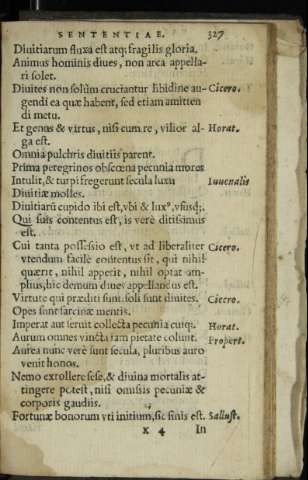 SENTENTIAE. 327
Diuitiarum fluxa est atq; fragilis gloria.
Animus hominis diues, non arca appella-
ri solet.
Diuites non solùm cruciantur libidine au- Cicero.
gendi ea quæ habent, sed etiam amitten
di metu.
Et genus & virtus, nisi cum re, vilior al- Horat.
ga est.
Omnia pulchris diuitiis parent.
Prima peregrinos obscœna pecunia mores
Intulit, & turpi fregerunt secula luxu Iuuenalis
Diuitiæ molles.
Diuitiarū cupido ibi est, vbi & luxꝰ, vsusq;.
Qui suis contentus est, is verè ditissimus
est.
Cui tanta possessio est, vt ad liberaliter Cicero.
vtendum facilè contentus sit, qui nihil
quærit, nihil apperit, nihil optat am-
plius, hic demum diues appellandus est.
Virtute qui præditi sunt, soli sunt diuites. Cicero.
Opes sunt sarcinæ mentis.
Imperat aut seruit collecta pecunia cuiq;. Horat.
Aurum omnes victa iam pietate colunt. Propert.
Aurea nunc verè sunt secula, pluribus auro
venit honos.
Nemo extollere sese, & diuina mortalis at-
tingere potest, nisi omissis pecuniæ &
corporis gaudiis.
Fortunæ bonorum vti initium, sic finis est. Sallust.
x 4 In